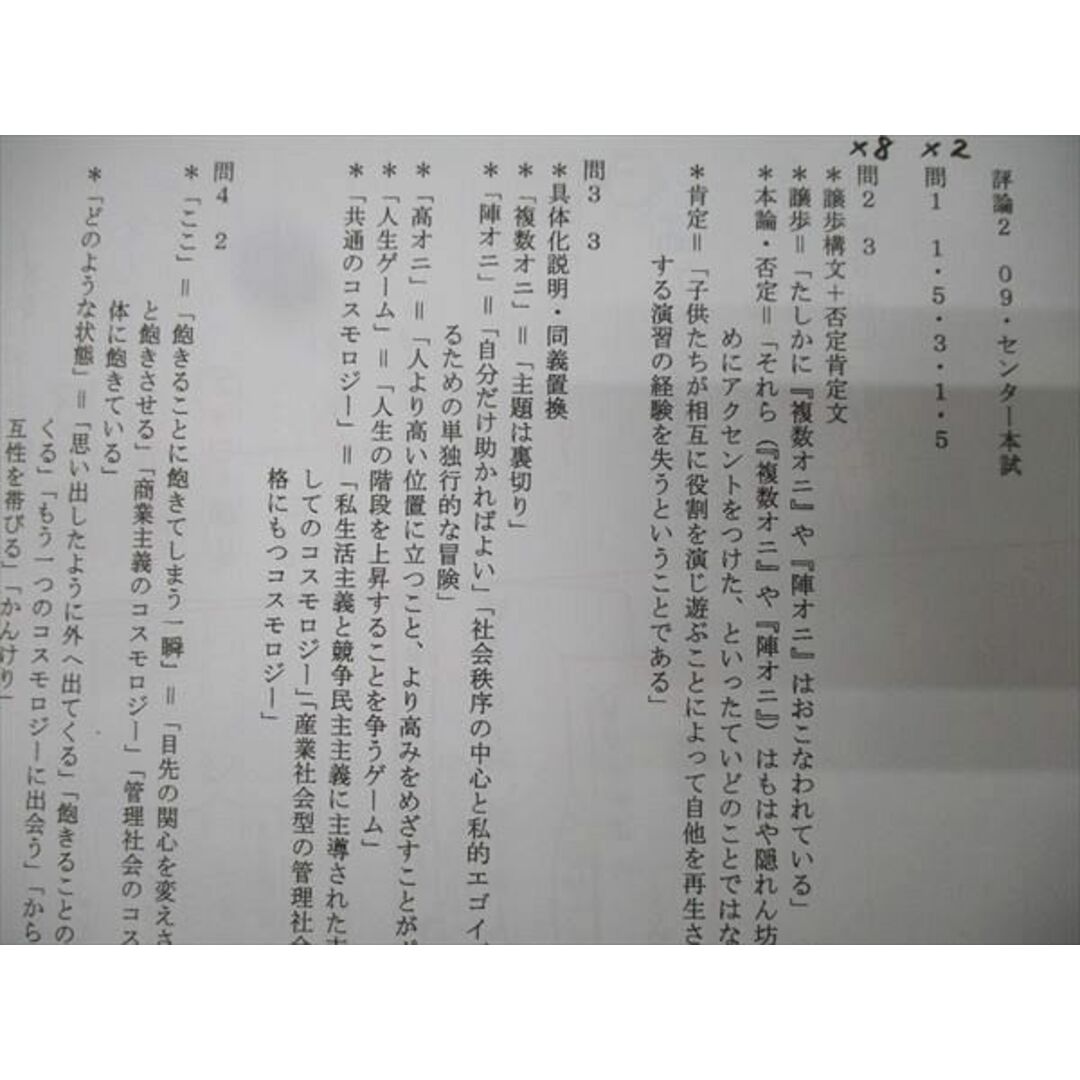 評論2 09・センター本試
×2
問1 1・5・3・1・5
×8
問2 3
＊譲歩構文＋否定肯定文
＊譲歩＝「たしかに『複数オニ』や『陣オニ』はおこなわれている」
＊本論・否定＝「それら（『複数オニ』や『陣オニ』）はもはや隠れん坊
めにアクセントをつけた、といったていどのことではな
＊肯定＝「子供たちが相互に役割を演じ遊ぶことによって自他を再生さ
する演習の経験を失うということである」
問3 3
＊具体化説明・同義置換
＊「複数オニ」＝「主題は裏切り」
＊「陣オニ」＝「自分だけ助かればよい」「社会秩序の中心と私的エゴイ
るための単独行的な冒険」
＊「高オニ」＝「人より高い位置に立つこと、より高みをめざすことが
＊「人生ゲーム」＝「人生の階段を上昇することを争うゲーム」
＊「共通のコスモロジー」＝「私生活主義と競争民主主義に主導された
してのコスモロジー」「産業社会型の管理社会
格にもつコスモロジー」
問4 2
＊「ここ」＝「飽きることに飽きてしまう一瞬」＝「目先の関心を変えさ
と飽きさせる」「商業主義のコスモロジー」「管理社会のコス
体に飽きている」
＊「どのような状態」＝「思い出したように外へ出てくる」「飽きることの
くる」「もう一つのコスモロジーに出会う」「から
互性を帯びる」「かんけり」